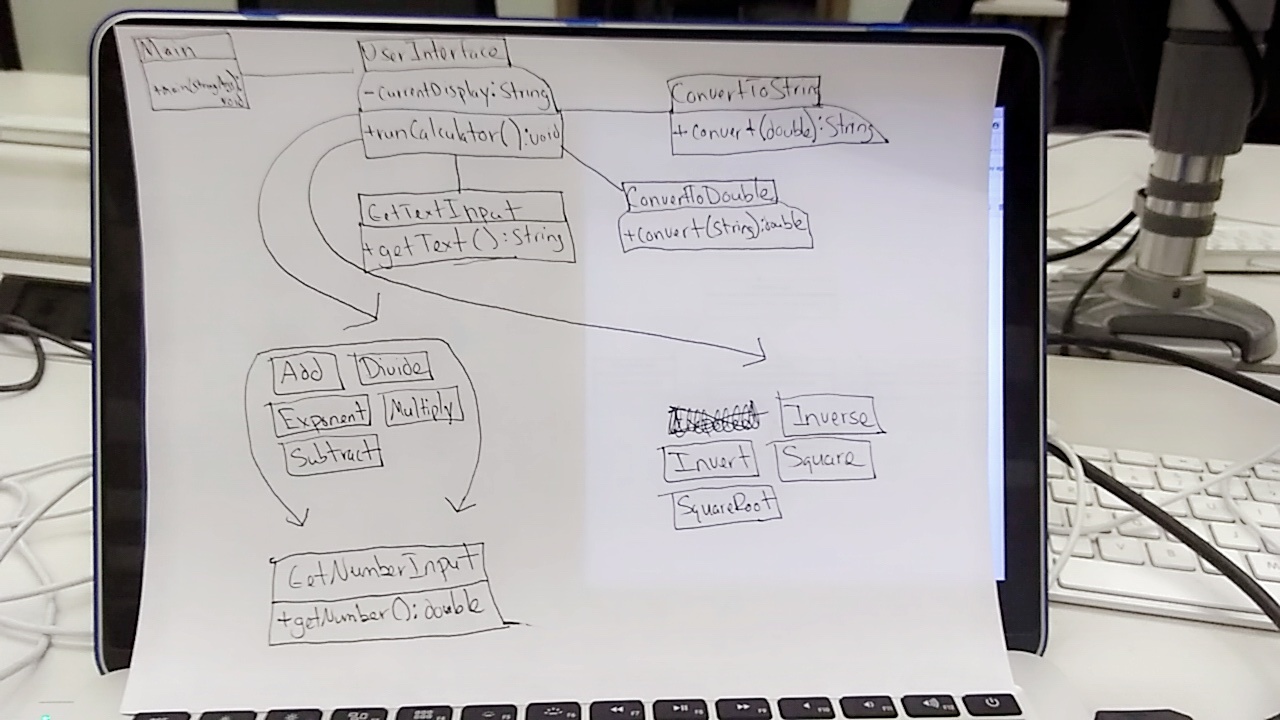 Main
+main(string[args]):
void
UserInterface
-currentDisplay: String
+runCalculator(): void
ConvertToString
+ convert(double): String
GetTextInput
+getText(): String
ConvertToDouble
+convert(string): double
Add
Divide
Exponent
Multiply
Subtract
Inverse
Invert
Square
SquareRoot
GetNumberInput
+getNumber(): double